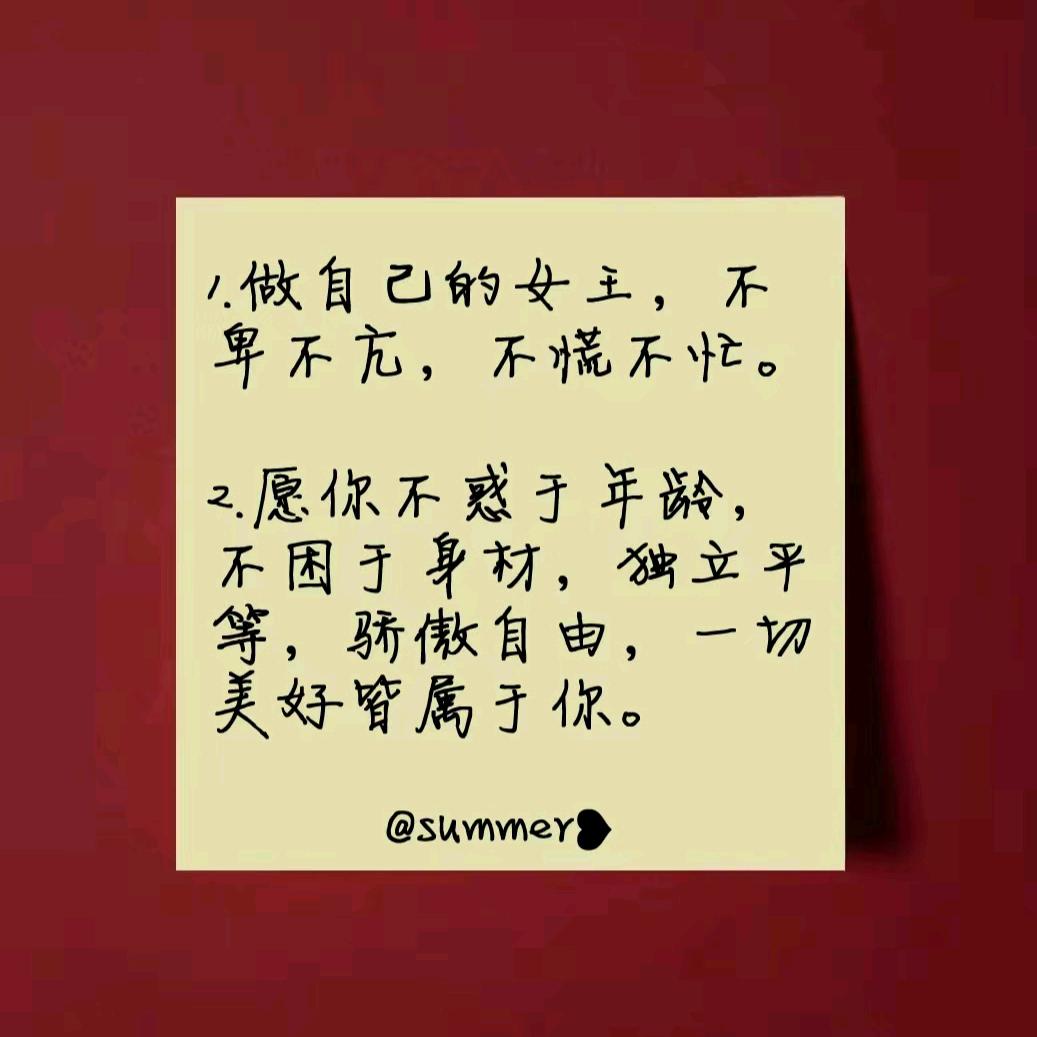 1.做自己的女王，不
卑不亢，不慌不忙。
2.愿你不惑于年龄，
不困于身材，独立平
等，骄傲自由，一切
美好皆属于你。
@summer❥